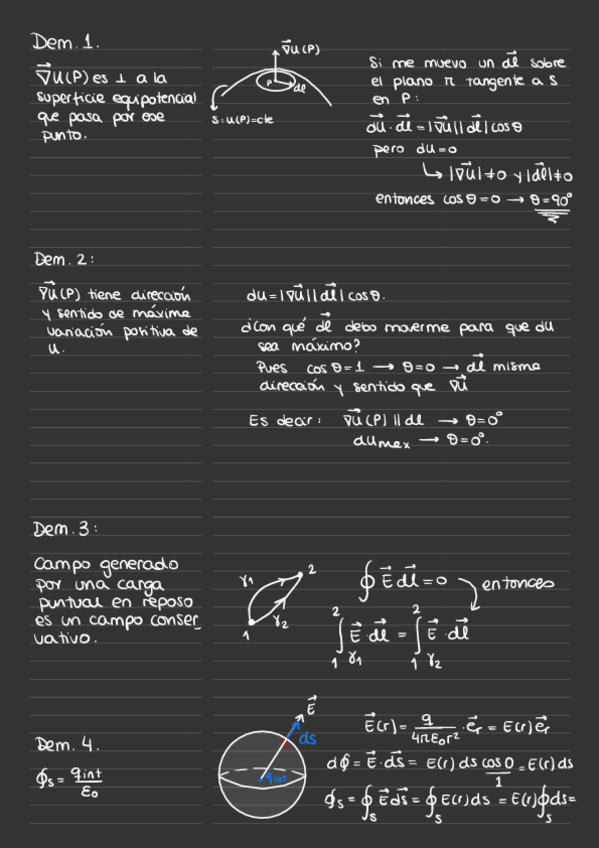 Dem. 1.
∇⃗U(P) es ⊥ a la
superficie equipotencial
que pasa por ese
punto.
∇⃗U(P)
P
dl⃗
S: U(P)=cte
Si me muevo un dl⃗ sobre
el plano π tangente a S
en P:
du⃗ · dl⃗ = |∇⃗U| |dl⃗| cosθ
pero dU=0
↳ |∇⃗U|≠0 y |dl⃗|≠0
entonces cosθ=0 → θ=90°
Dem. 2:
∇⃗U(P) tiene dirección
y sentido de máxima
variación positiva de
U.
dU=|∇⃗U| |dl⃗| cosθ.
¿Con qué dl⃗ debo moverme para que dU
sea máximo?
Pues cosθ=1 → θ=0 → dl⃗ misma
dirección y sentido que ∇⃗U
Es decir: ∇⃗U(P) || dl → θ=0°
dU max → θ=0°.
Dem. 3:
Campo generado
por una carga
puntual en reposo
es un campo conser_
vativo.
γ1
2
1
γ2
∮ E⃗ dl⃗ = 0 entonces
∫₁² γ1 E⃗ · dl⃗ = ∫₁² γ2 E⃗ · dl⃗
Dem. 4.
ϕs = qint/ε0
E⃗
ds
qint
E⃗(r) = q/(4πε0r²) · e⃗r = E(r) e⃗r
dϕ = E⃗ · ds⃗ = E(r) ds cos0 = E(r) ds
1
ϕs = ∮s E⃗ ds⃗ = ∮s E(r) ds = E(r) ∮s ds =